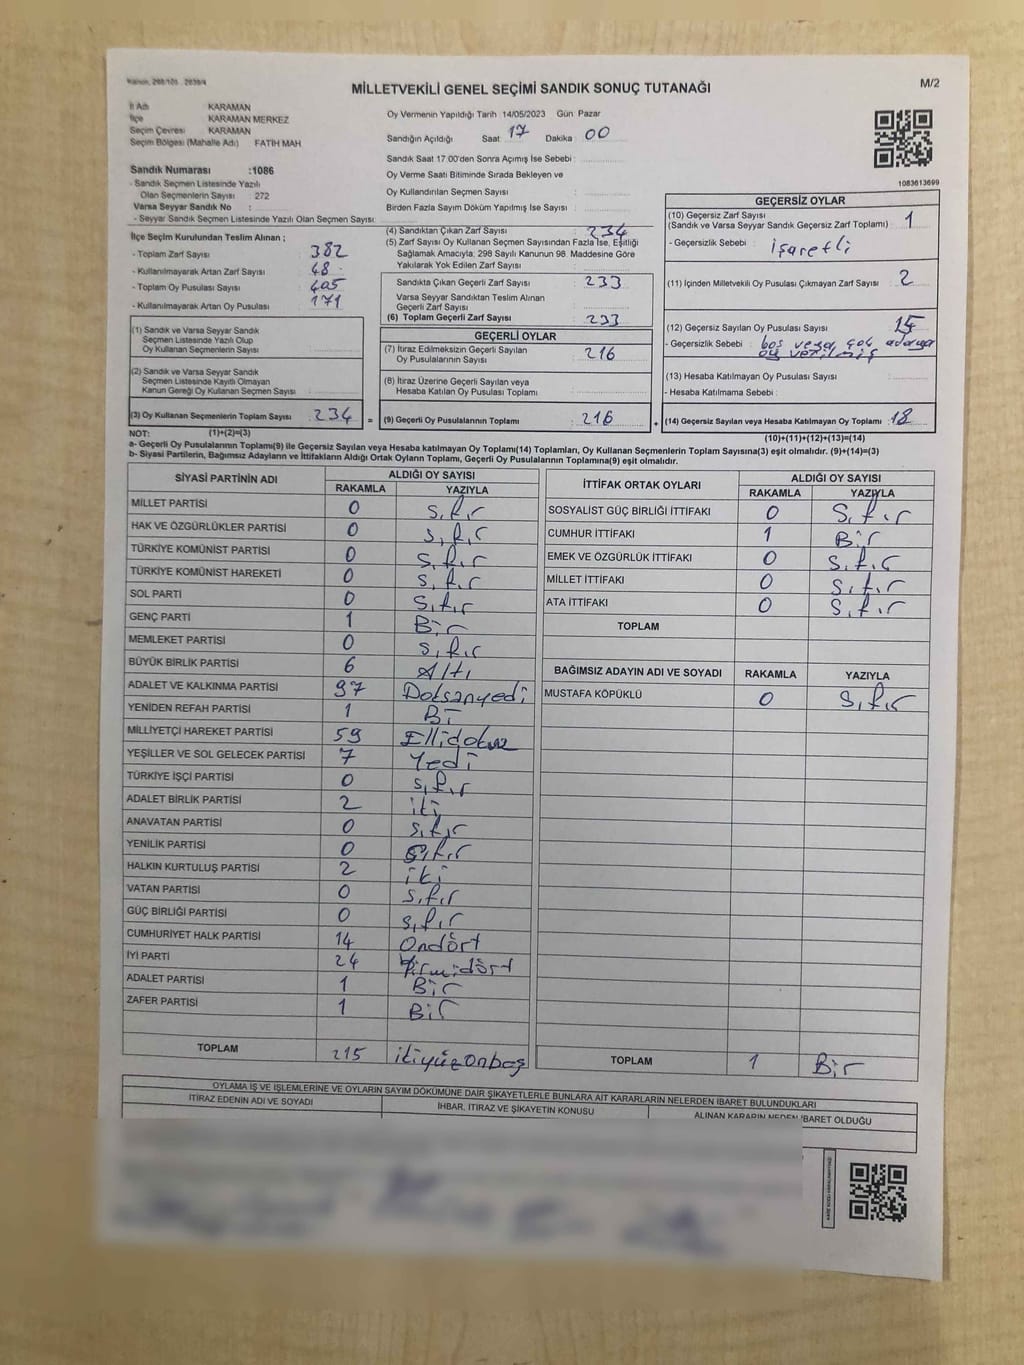 Kanun, 298/105 2839/4
M/2
MİLLETVEKİLİ GENEL SEÇİMİ SANDIK SONUÇ TUTANAĞI
İl Adı KARAMAN
İlçe KARAMAN MERKEZ
Seçim Çevresi KARAMAN
Seçim Bölgesi (Mahalle Adı) FATİH MAH
Sandık Numarası :1086
- Sandık Seçmen Listesinde Yazılı
Olan Seçmenlerin Sayısı : 272
Varsa Seyyar Sandık No :
- Seyyar Sandık Seçmen Listesinde Yazılı Olan Seçmen Sayısı:
Oy Vermenin Yapıldığı Tarih 14/05/2023 Gün Pazar
Sandığın Açıldığı Saat 17 Dakika 00
Sandık Saat 17.00'den Sonra Açımış İse Sebebi :
Oy Verme Saati Bitiminde Sırada Bekleyen ve
Oy Kullandırılan Seçmen Sayısı :
Birden Fazla Sayım Döküm Yapılmış İse Sayısı :
1083613699
İlçe Seçim Kurulundan Teslim Alınan ;
- Toplam Zarf Sayısı : 382
- Kullanılmayarak Artan Zarf Sayısı : 48
- Toplam Oy Pusulası Sayısı : 405
- Kullanılmayarak Artan Oy Pusulası : 171
(1) Sandık ve Varsa Seyyar Sandık
Seçmen Listesinde Yazılı Olup
Oy Kullanan Seçmenlerin Sayısı :
(2) Sandık ve Varsa Seyyar Sandık
Seçmen Listesinde Kayıtlı Olmayan
Kanun Gereği Oy Kullanan Seçmen Sayısı :
(3) Oy Kullanan Seçmenlerin Toplam Sayısı : 234 =
(4) Sandıktan Çıkan Zarf Sayısı : 234
(5) Zarf Sayısı Oy Kullanan Seçmen Sayısından Fazla İse, Eşitliği
Sağlamak Amacıyla; 298 Sayılı Kanunun 98. Maddesine Göre
Yakılarak Yok Edilen Zarf Sayısı :
Sandıkta Çıkan Geçerli Zarf Sayısı : 233
Varsa Seyyar Sandıktan Teslim Alınan
Geçerli Zarf Sayısı :
(6) Toplam Geçerli Zarf Sayısı : 233
GEÇERLİ OYLAR
(7) İtiraz Edilmeksizin Geçerli Sayılan
Oy Pusulalarının Sayısı : 216
(8) İtiraz Üzerine Geçerli Sayılan veya
Hesaba Katılan Oy Pusulası Toplamı :
(9) Geçerli Oy Pusulalarının Toplamı : 216 +
GEÇERSİZ OYLAR
(10) Geçersiz Zarf Sayısı
(Sandık ve Varsa Seyyar Sandık Geçersiz Zarf Toplamı) : 1
- Geçersizlik Sebebi : işaretli
(11) İçinden Milletvekili Oy Pusulası Çıkmayan Zarf Sayısı : 2
(12) Geçersiz Sayılan Oy Pusulası Sayısı : 15
- Geçersizlik Sebebi : boş veya çok adaya
oy verilmiş
(13) Hesaba Katılmayan Oy Pusulası Sayısı :
- Hesaba Katılmama Sebebi :
(14) Geçersiz Sayılan veya Hesaba Katılmayan Oy Toplamı : 18
NOT: (1)+(2)=(3)
(10)+(11)+(12)+(13)=(14)
a- Geçerli Oy Pusulalarının Toplamı(9) ile Geçersiz Sayılan veya Hesaba katılmayan Oy Pusulaları Toplamı(14) Toplamları, Oy Kullanan Seçmenlerin Toplam Sayısına(3) eşit olmalıdır. (9)+(14)=(3)
b- Siyasi Partilerin, Bağımsız Adayların ve İttifakların Aldığı Ortak Oyların Toplamı, Geçerli Oy Pusulalarının Toplamına(9) eşit olmalıdır.
SİYASİ PARTİNİN ADI ALDIĞI OY SAYISI
RAKAMLA YAZIYLA
MİLLET PARTİSİ 0 Sıfır
HAK VE ÖZGÜRLÜKLER PARTİSİ 0 Sıfır
TÜRKİYE KOMÜNİST PARTİSİ 0 Sıfır
TÜRKİYE KOMÜNİST HAREKETİ 0 Sıfır
SOL PARTİ 0 Sıfır
GENÇ PARTİ 1 Bir
MEMLEKET PARTİSİ 0 Sıfır
BÜYÜK BİRLİK PARTİSİ 6 Altı
ADALET VE KALKINMA PARTİSİ 97 Doksanyedi
YENİDEN REFAH PARTİSİ 1 Bir
MİLLİYETÇİ HAREKET PARTİSİ 59 Ellidokuz
YEŞİLLER VE SOL GELECEK PARTİSİ 7 Yedi
TÜRKİYE İŞÇİ PARTİSİ 0 Sıfır
ADALET BİRLİK PARTİSİ 2 iki
ANAVATAN PARTİSİ 0 Sıfır
YENİLİK PARTİSİ 0 Sıfır
HALKIN KURTULUŞ PARTİSİ 2 iki
VATAN PARTİSİ 0 Sıfır
GÜÇ BİRLİĞİ PARTİSİ 0 Sıfır
CUMHURİYET HALK PARTİSİ 14 Ondört
İYİ PARTİ 24 Yirmidört
ADALET PARTİSİ 1 Bir
ZAFER PARTİSİ 1 Bir
TOPLAM 215 ikiyüzonbeş
İTTİFAK ORTAK OYLARI ALDIĞI OY SAYISI
RAKAMLA YAZIYLA
SOSYALİST GÜÇ BİRLİĞİ İTTİFAKI 0 Sıfır
CUMHUR İTTİFAKI 1 Bir
EMEK VE ÖZGÜRLÜK İTTİFAKI 0 Sıfır
MİLLET İTTİFAKI 0 Sıfır
ATA İTTİFAKI 0 Sıfır
TOPLAM
BAĞIMSIZ ADAYIN ADI VE SOYADI RAKAMLA YAZIYLA
MUSTAFA KÖPÜKLÜ 0 Sıfır
TOPLAM 1 Bir
OYLAMA İŞ VE İŞLEMLERİNE VE OYLARIN SAYIM DÖKÜMÜNE DAİR ŞİKAYETLERLE BUNLARA AİT KARARLARIN NELERDEN İBARET BULUNDUKLARI
İTİRAZ EDENİN ADI VE SOYADI İHBAR, İTİRAZ VE ŞİKAYETİN KONUSU ALINAN KARARIN NEDEN İBARET OLDUĞU